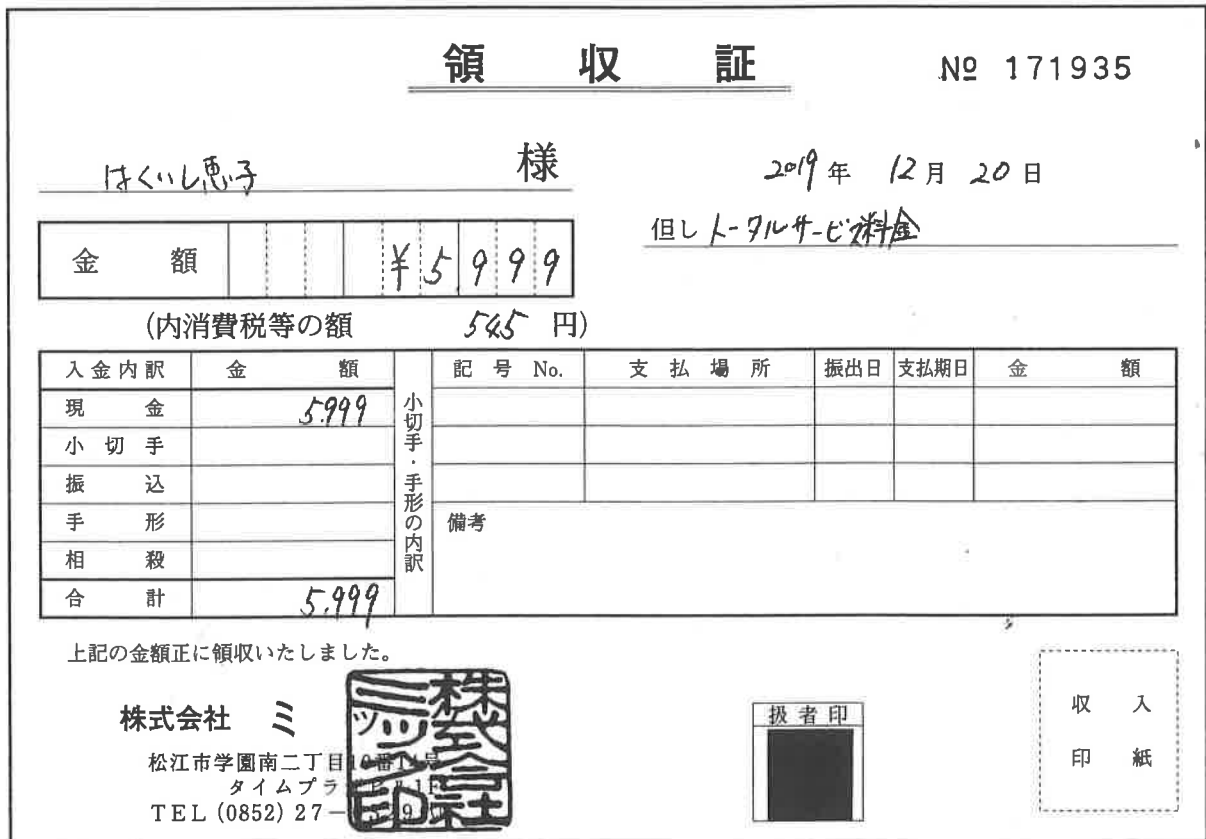 領収証
№ 171935
はくいし恵子 様
2019年 12月 20日
但し トータルサービス料金
金額 ¥5999
(内消費税等の額 545 円)
入金内訳 金額
現金 5.999
小切手
振込
手形
相殺
合計 5.999
小切手・手形の内訳
記号No. 支払場所 振出日 支払期日 金額
備考
上記の金額正に領収いたしました。
株式会社 ミ
松江市学園南二丁目
タイムプラ
TEL (0852) 27-
株式会社
ミック
印
扱者印
収入
印紙